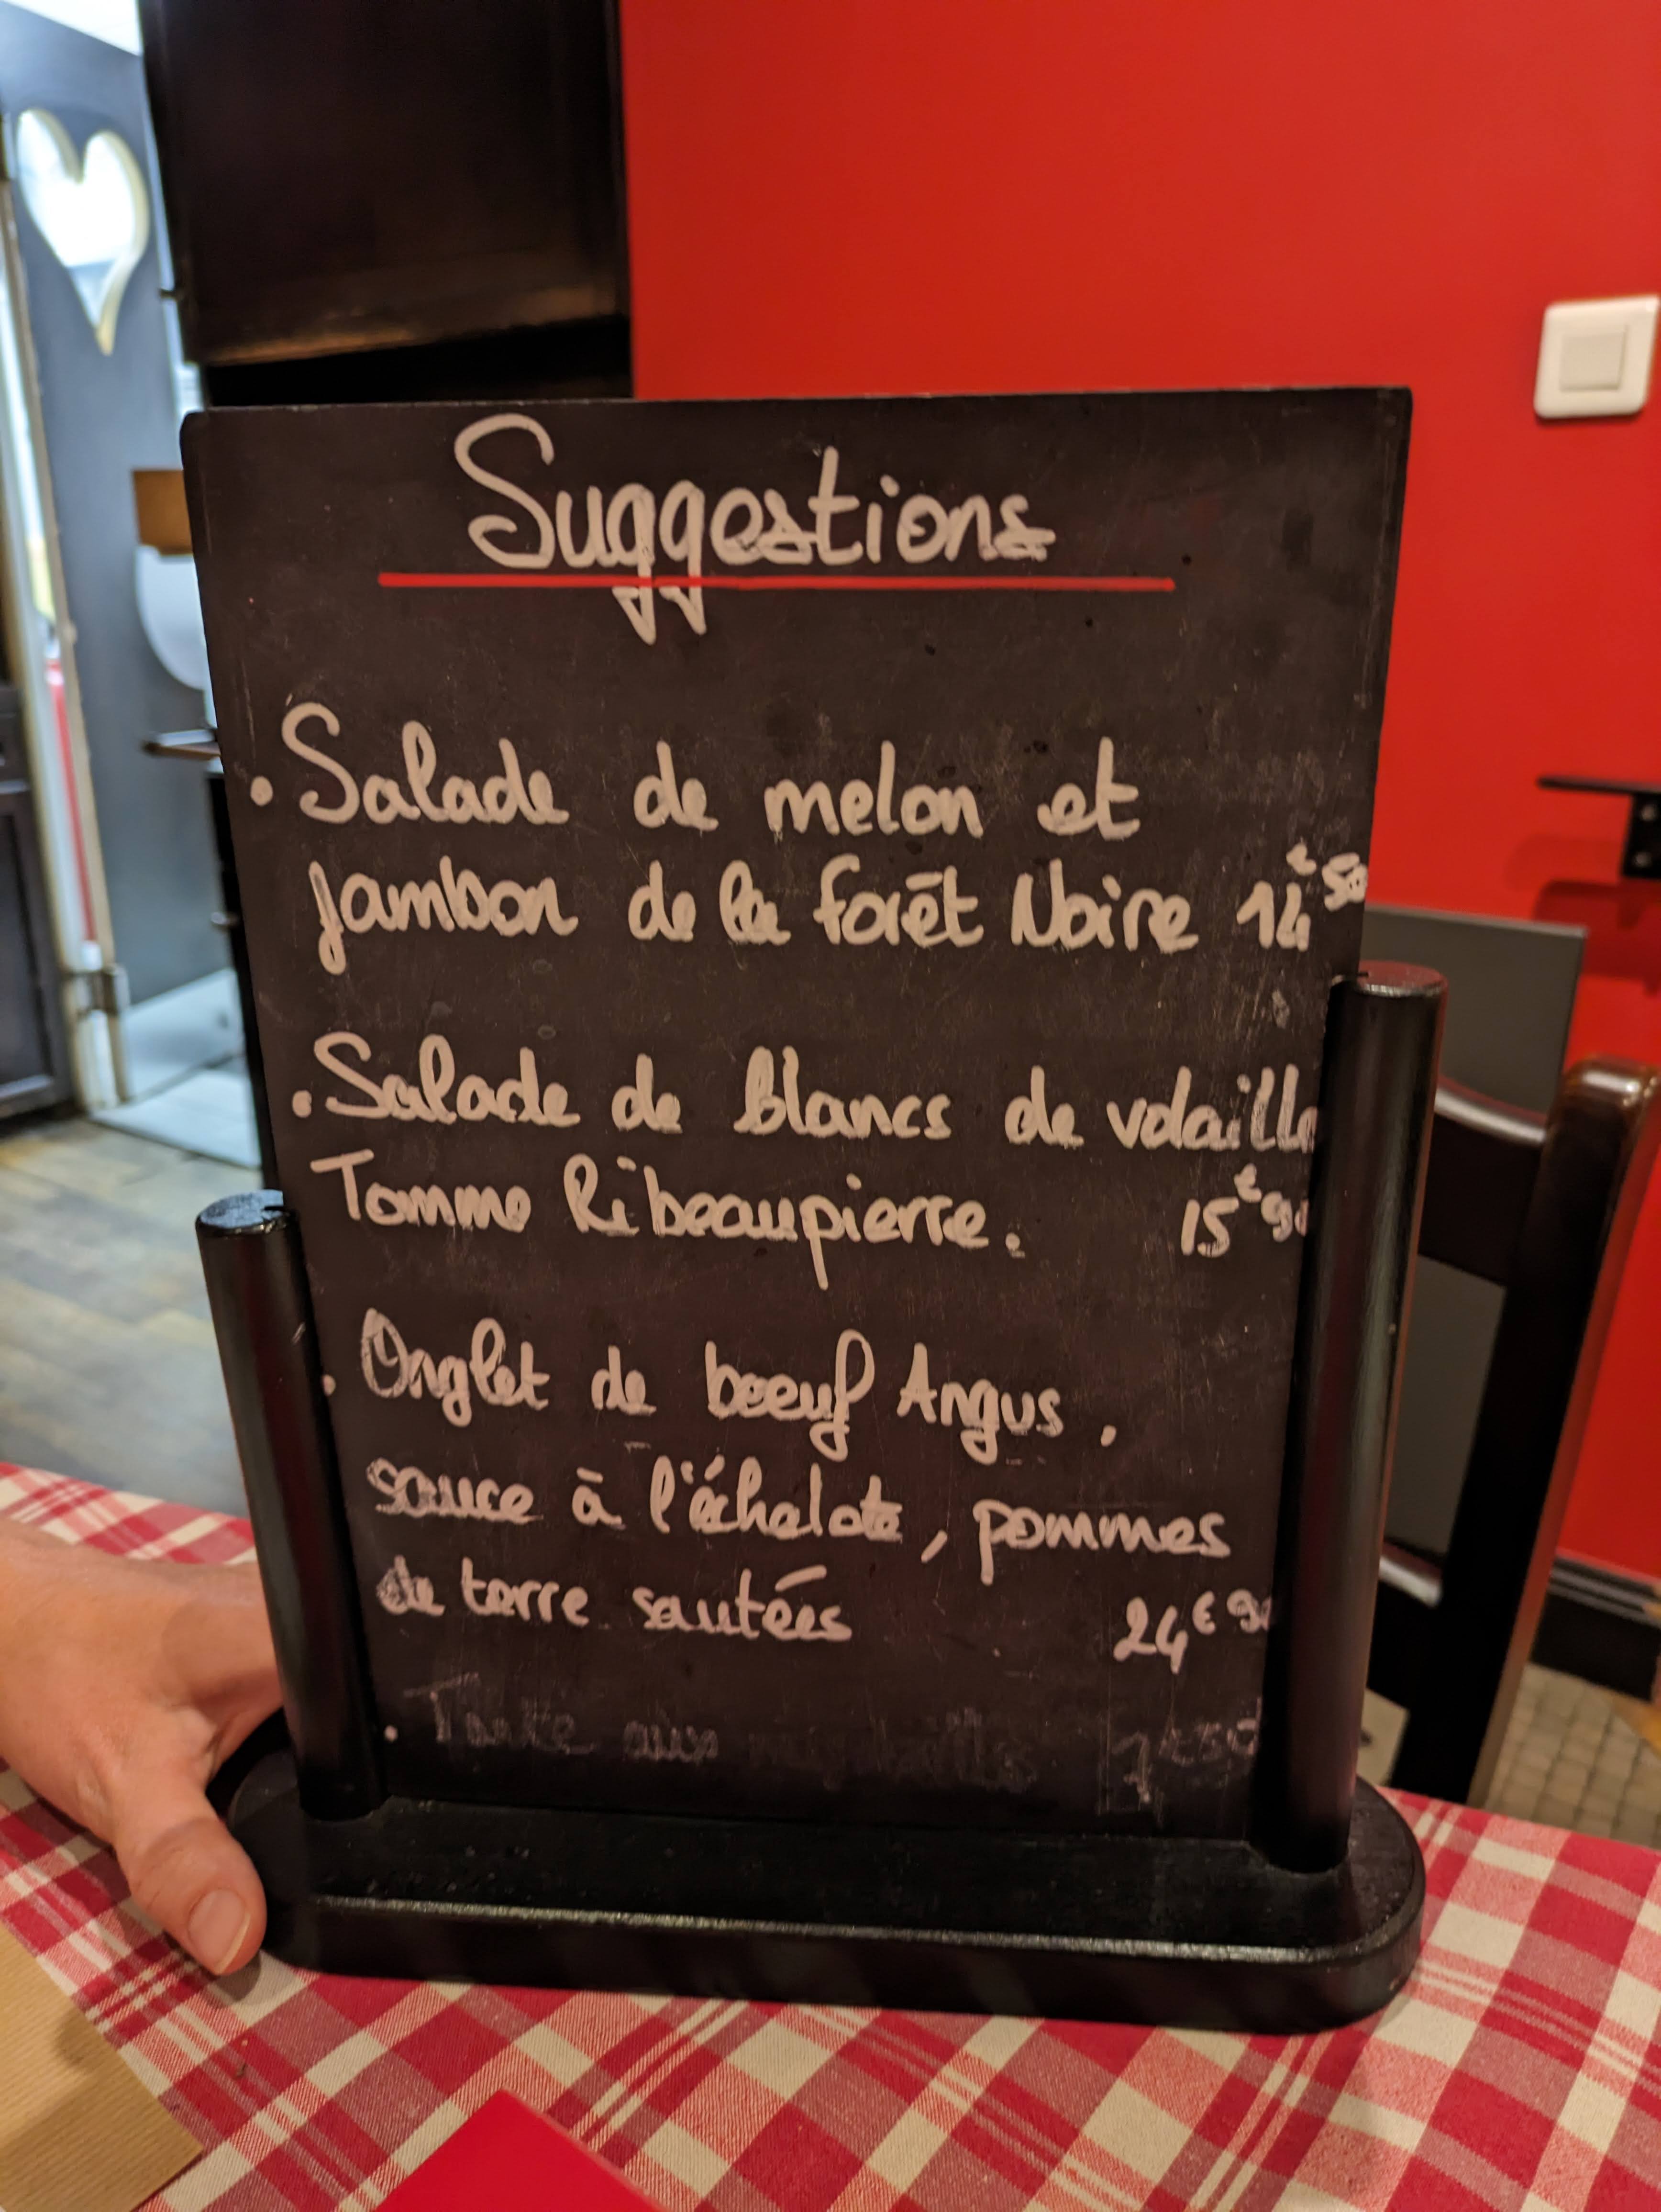 Suggestions
. Salade de melon et
jambon de la forêt Noire 14€50
. Salade de blancs de volaille
Tomme Ribeaupierre. 15€90
. Onglet de boeuf Angus,
sauce à l'échalote, pommes
de terre sautées 24€90
. Tarte aux